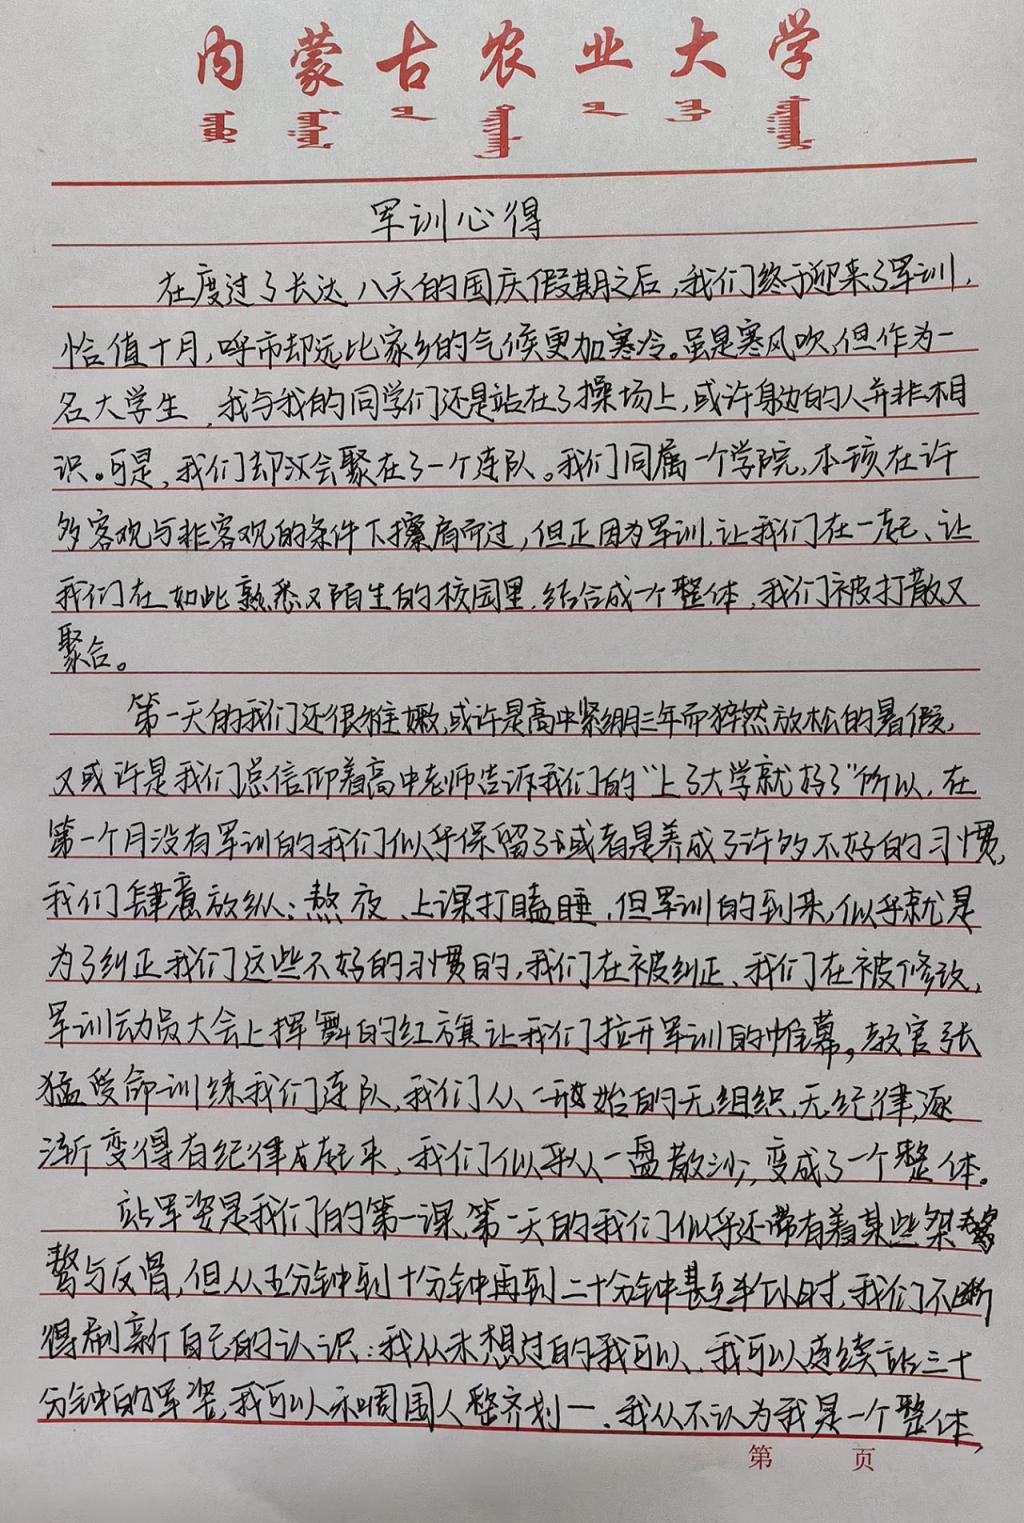 内蒙古农业大学
军训心得
在度过了长达八天的国庆假期之后,我们终于迎来了军训,
恰值十月,呼市却远比家乡的气候更加寒冷。虽是寒风吹,但作为一
名大学生,我与我的同学们还是站在了操场上,或许身边的人并非相
识。可是,我们却汇聚在了一个连队。我们同属一个学院,本该在许
多客观与非客观的条件下擦肩而过,但正因为军训,让我们在一起、让
我们在如此熟悉又陌生的校园里,结合成一个整体,我们被打散又
聚合。
第一天的我们还很稚嫩,或许是高中紧绷三年而猝然放松的暑假,
又或许是我们总信仰着高中老师告诉我们的“上了大学就好了”所以,在
第一个月没有军训的我们似乎保留了或者是养成了许多不好的习惯,
我们肆意放纵:熬夜、上课打瞌睡,但军训的到来,似乎就是
为了纠正我们这些不好的习惯的,我们在被纠正、我们在被修改,
军训动员大会上挥舞的红旗让我们拉开军训的帷幕,教官张
猛受命训练我们连队,我们从一开始的无组织,无纪律,逐
渐变得有纪律起来,我们似乎从一盘散沙,变成了一个整体。
站军姿是我们的第一课,第一天的我们似乎还带有着某些桀骜
骜与反骨,但从五分钟到十分钟再到二十分钟甚至半个小时,我们不断
得刷新自己的认识:我从未想过的我可以、我可以连续站三十
分钟的军姿,我可以和周围人整齐划一、我从不认为我是一个整体,
第 页